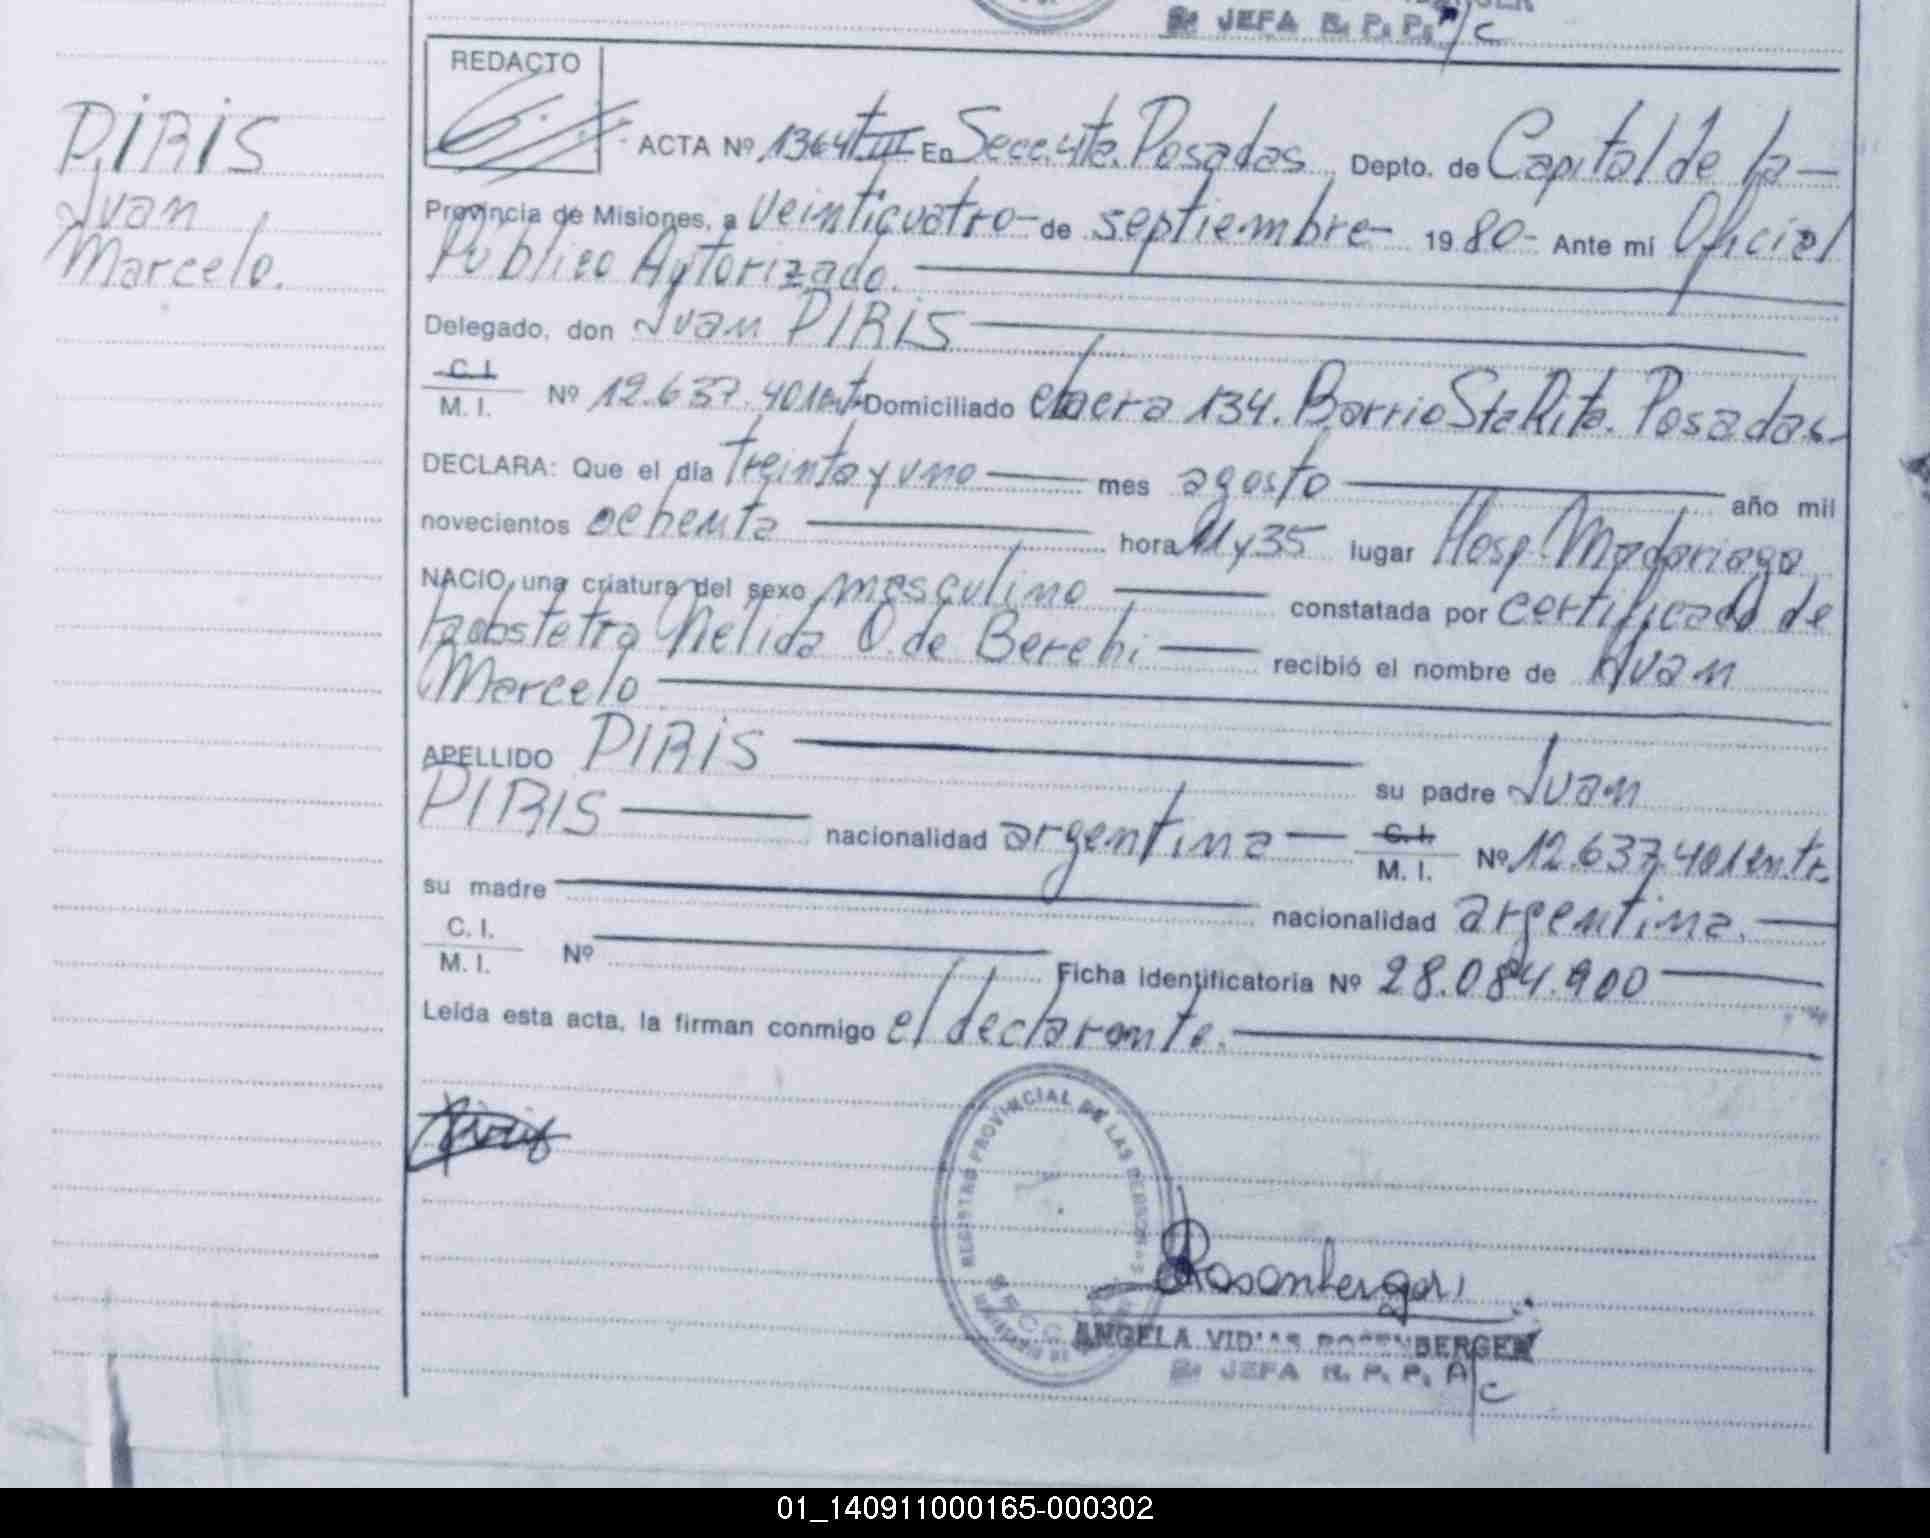 JEFA R. P. P. A/C
REDACTO
PIRIS
Juan
Marcelo.
ACTA Nº 1364 t III En Secc. 4ta. Posadas Depto. de Capital de la
Provincia de Misiones, a veinticuatro de septiembre 1980 Ante mí Oficial
Público Autorizado.
Delegado, don Juan PIRIS
C. I.
M. I. Nº 12.637.401 Domiciliado chacra 134. Barrio Sta Rita. Posadas
DECLARA: Que el día treinta y uno mes agosto año mil
novecientos ochenta hora 11 y 35 lugar Hosp. Madariaga
NACIO, una criatura del sexo masculino constatada por certificado de
la obstetra Nelida O. de Berehi recibió el nombre de Juan
Marcelo
APELLIDO PIRIS su padre Juan
PIRIS nacionalidad argentina C. I.
M. I. Nº 12.637.401
su madre nacionalidad argentina.
C. I.
M. I. Nº Ficha identificatoria Nº 28.084.900
Leída esta acta, la firman conmigo el declarante.
REGISTRO PROVINCIAL DE LAS PERSONAS
ANGELA ROSENBERGER
JEFA R. P. P. A/C
01_140911000165-000302